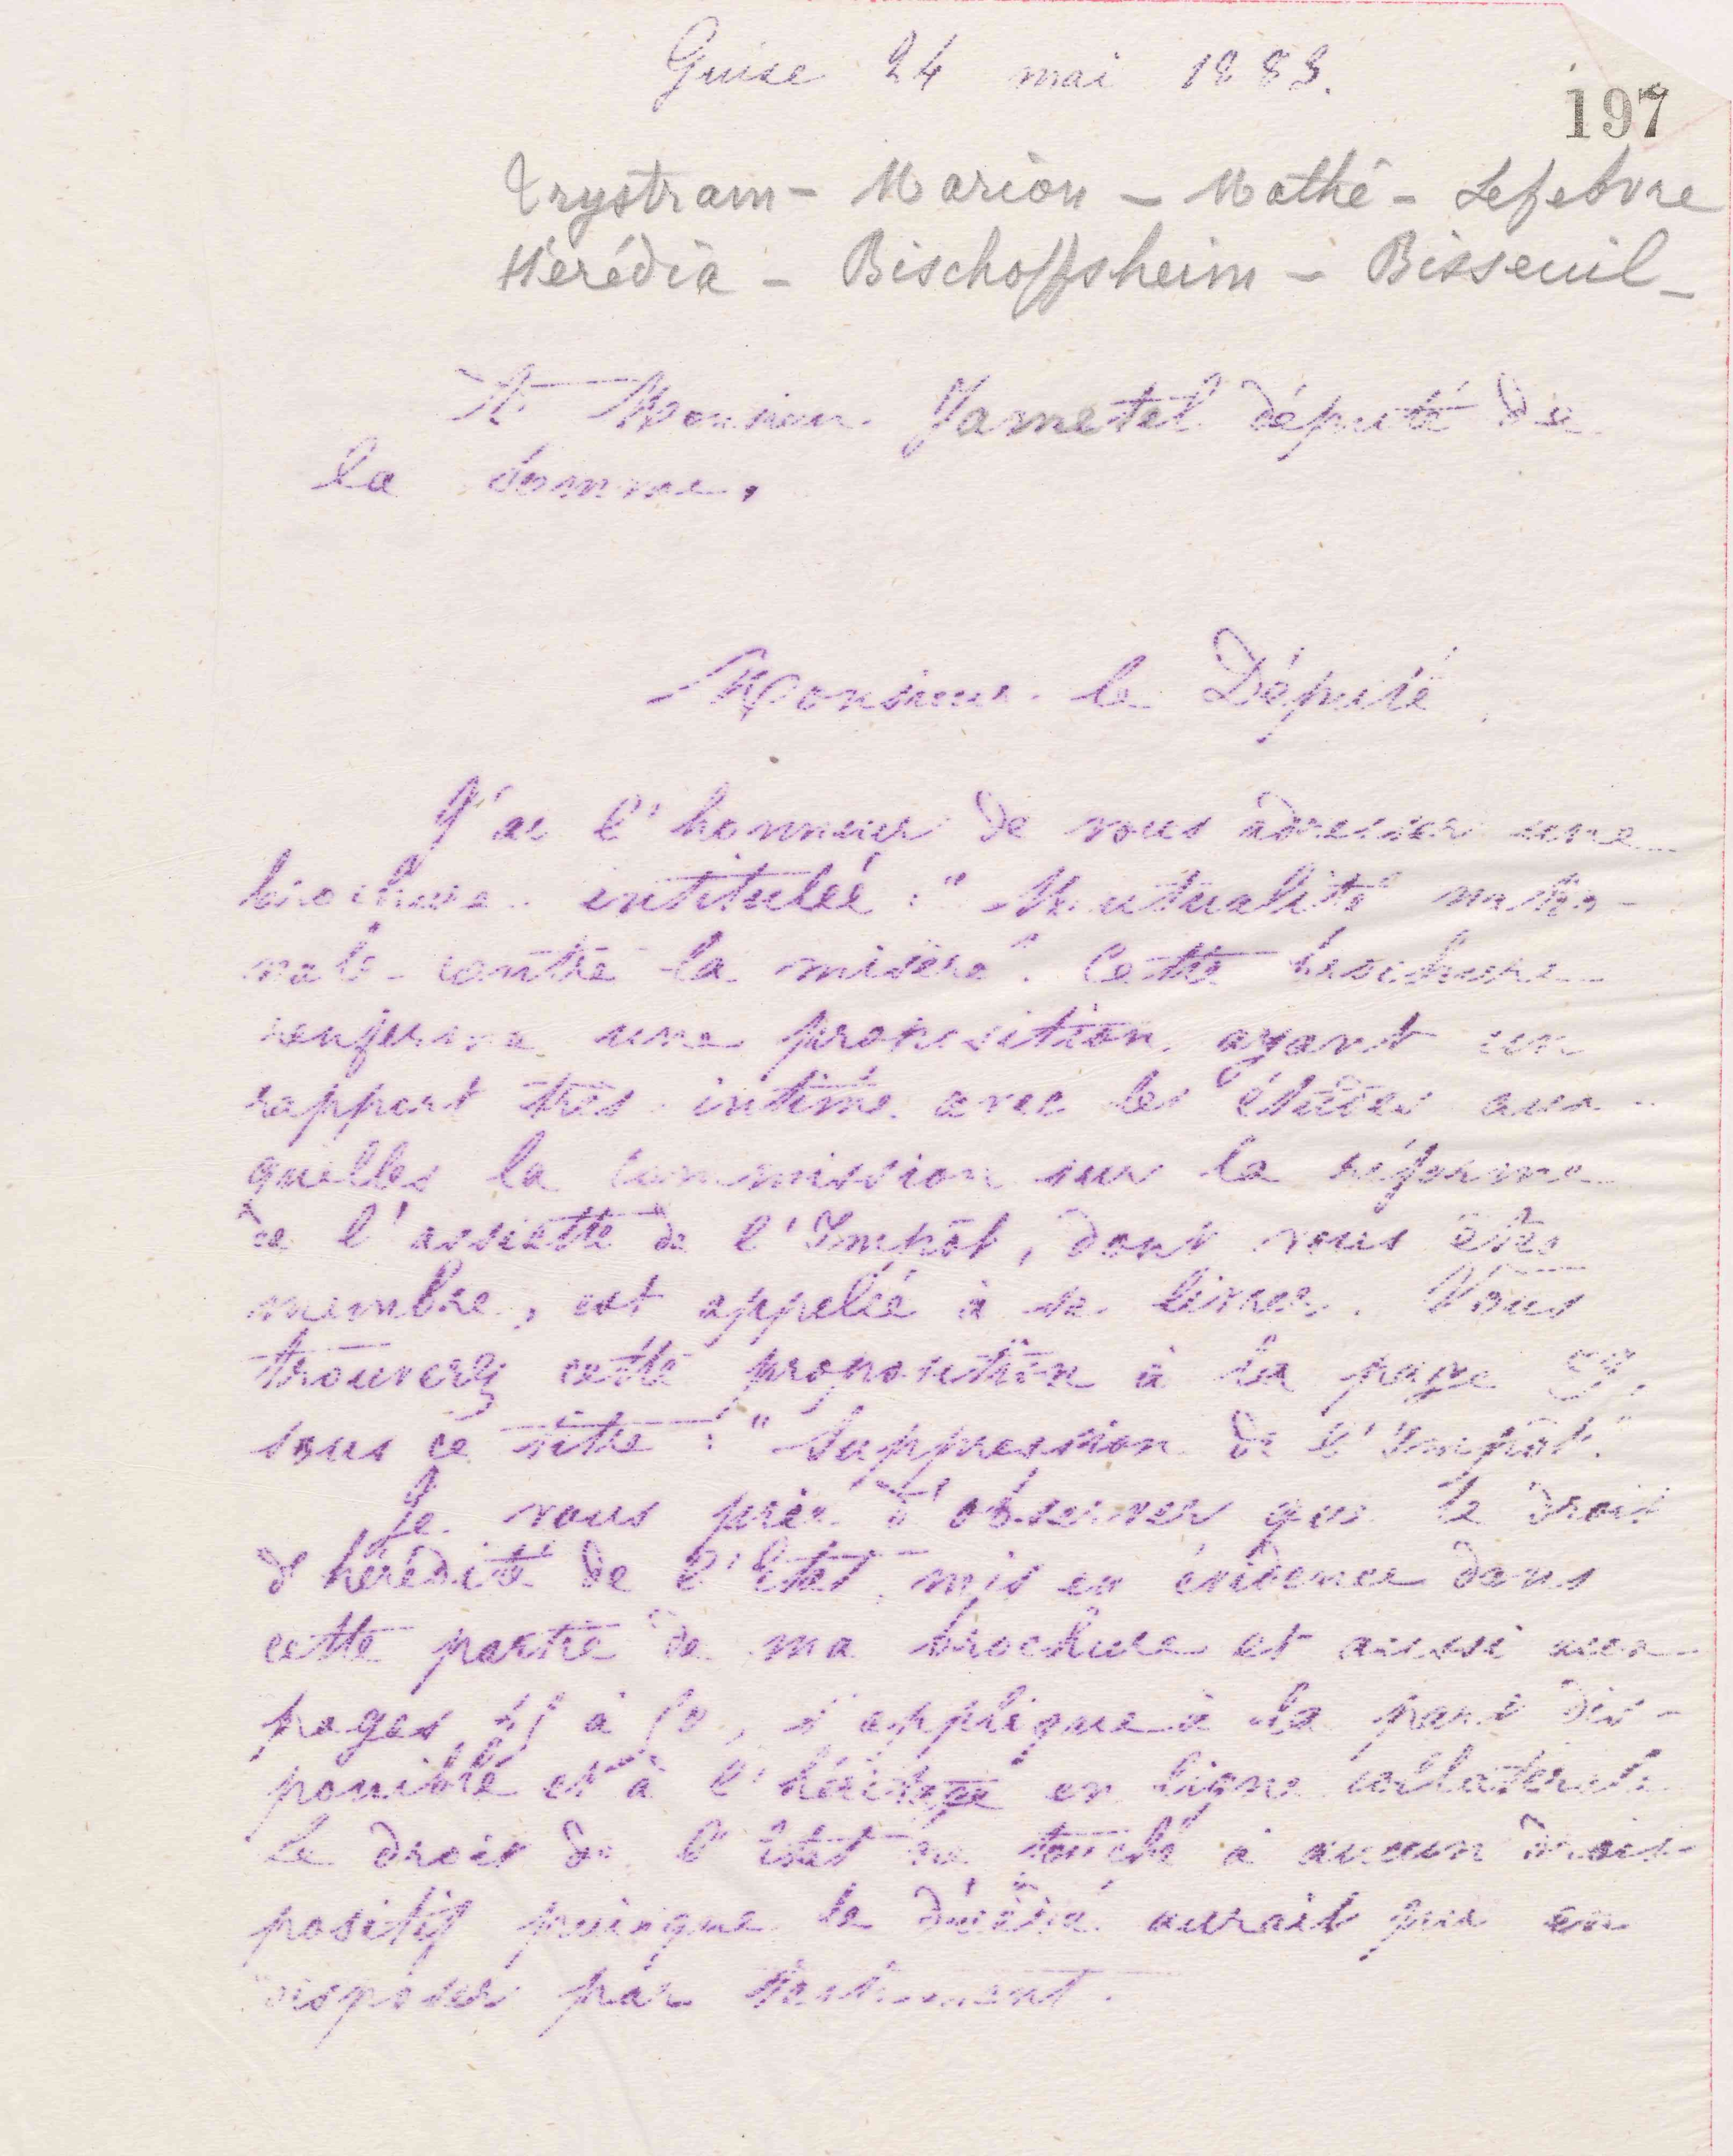 Guise 24 mai 1883.
197
Trystram - Marion - Mathé - Lefebvre
Hérédia - Bischoffsheim - Bisseuil -
A Monsieur Jametel député de
la Somme.
Monsieur le Député
J'ai l'honneur de vous adresser une
brochure intitulée : " Mutualité natio-
nale contre la misère ". Cette brochure
renferme une proposition ayant un
rapport très intime avec les études aux-
quelles la commission sur la réforme
de l'assiette de l'Impôt, dont vous êtes
membre, est appelée à se livrer. Vous
trouverez cette proposition à la page
sous ce titre : " Suppression de l'Impôt. "
Je vous prie d'observer que le droit
d'hérédité de l'Etat, mis en évidence dans
cette partie de ma brochure et aussi aux
pages à s'applique à la part dis-
ponible et à l'héritage en ligne collatérale
Le droit de l'Etat ne touche à aucun droit
positif puisque le décédé aurait pu en
disposer par testament.